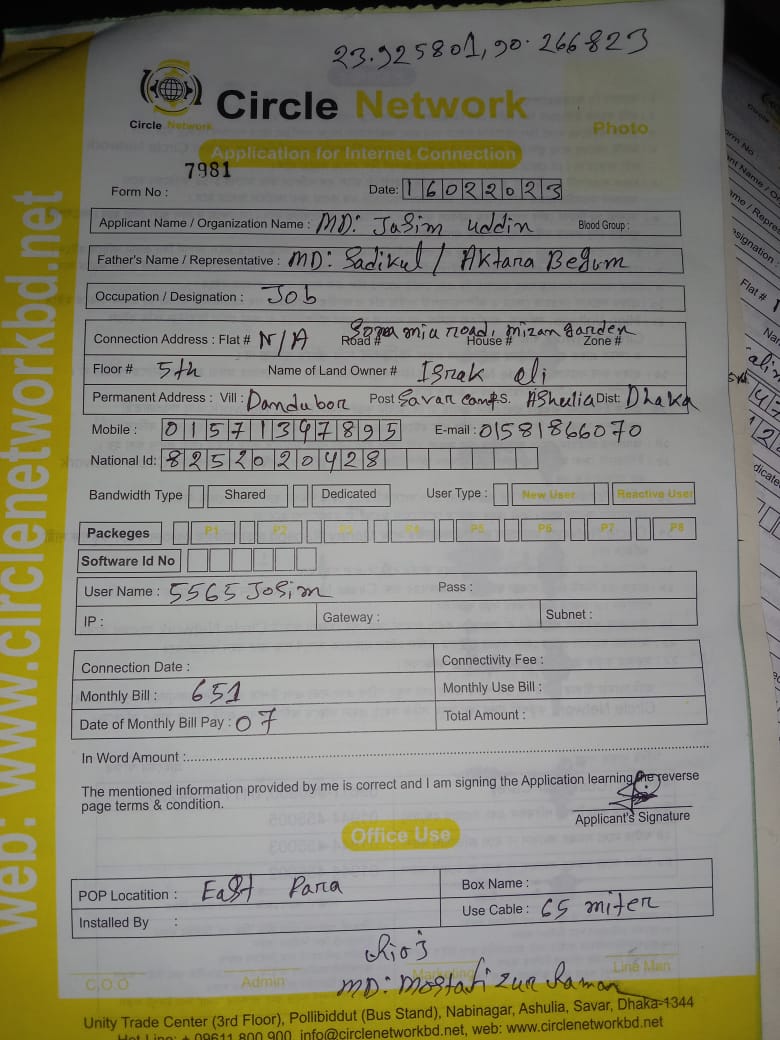 23.925801, 90.266823
Circle Network
Circle Network
Photo
Application for Internet Connection
7981
Form No :
Date: 16022023
Applicant Name / Organization Name : MD: Jasim uddin Blood Group :
Father's Name / Representative : MD: Sadikul / Aktara Begum
Occupation / Designation : Job
Connection Address : Flat # N/A Road # House # Zone #
mia road, mizan garden
Floor # 5th Name of Land Owner # Israk ali
Permanent Address : Vill : Dandubor Post Savar Cant P.S. Ashulia Dist: Dhaka
Mobile : 01571397895 E-mail : 01581866070
National Id: 8252020428
Bandwidth Type Shared Dedicated User Type : New User Reactive User
Packeges P1 P2 P3 P4 P5 P6 P7 P8
Software Id No
User Name : 5565 Josim Pass :
IP : Gateway : Subnet :
Connection Date : Connectivity Fee :
Monthly Bill : 651 Monthly Use Bill :
Date of Monthly Bill Pay : 07 Total Amount :
In Word Amount :
The mentioned information provided by me is correct and I am signing the Application learning the reverse
page terms & condition.
Applicant's Signature
Office Use
POP Locatition : East Para Box Name :
Installed By : Use Cable : 65 miter
C.O.O Admin Marketing Line Man
MD: Mostafizur Raman
Unity Trade Center (3rd Floor), Pollibiddut (Bus Stand), Nabinagar, Ashulia, Savar, Dhaka-1344
Hot Line: + 09611 800 900, info@circlenetworkbd.net, web: www.circlenetworkbd.net
web: www.circlenetworkbd.net